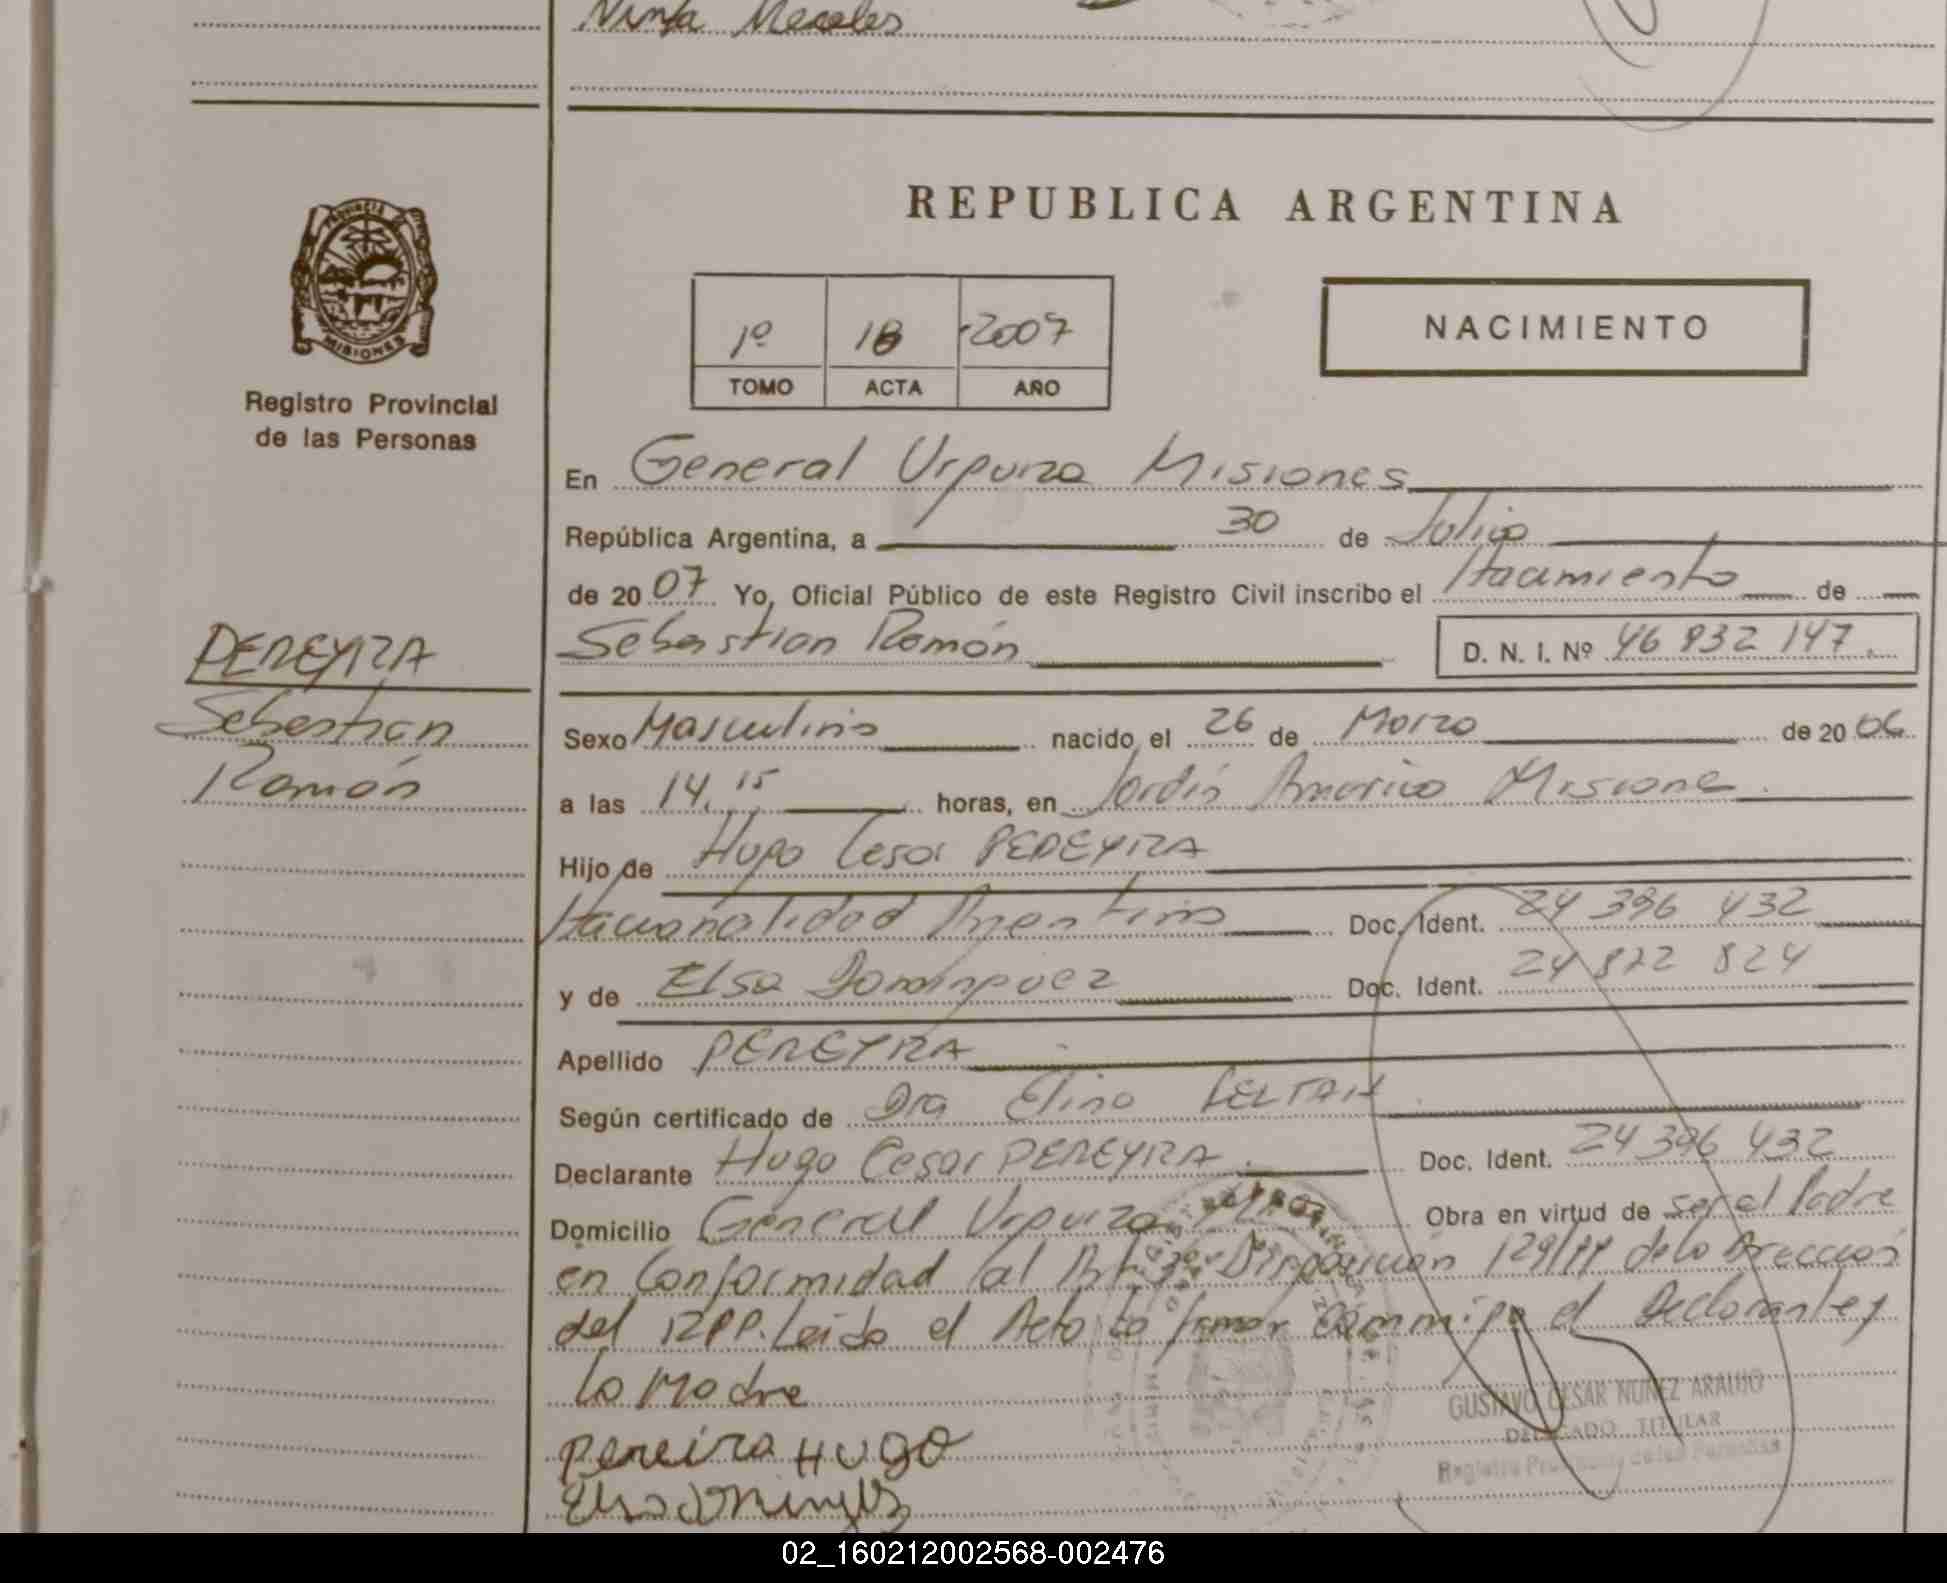 Ninfa Meceles
REPUBLICA ARGENTINA
PROVINCIA
MISIONES
Registro Provincial
de las Personas
1º 18 2007
TOMO ACTA AÑO
NACIMIENTO
En General Urquiza Misiones
República Argentina, a 30 de Julio
de 20 07 Yo, Oficial Público de este Registro Civil inscribo el Nacimiento de
Sebastian Ramón D. N. I. Nº 46 832 147
PEREYRA
Sebastian
Ramón
Sexo Masculino nacido el 26 de Marzo de 20 06
a las 14.15 horas, en Jardín America Misione
Hijo de Hugo Cesar PEREYRA
Nacionalidad Argentino Doc. Ident. 24 396 432
y de Elsa Dominguez Doc. Ident. 24 822 824
Apellido PEREYRA
Según certificado de Dra Elina BELTRAN
Declarante Hugo Cesar PEREYRA Doc. Ident. 24 396 432
Domicilio General Urquiza Obra en virtud de ser el Padre
en Conformidad al Art 3º Disposición 129/99 de la Dirección
del RPP. Leida el Acta la firman conmigo el Declarante y
la Madre
Pereira HUGO
GUSTAVO CESAR NUÑEZ ARAUJO
DELEGADO TITULAR
Registro Provincial de las Personas
02_160212002568-002476